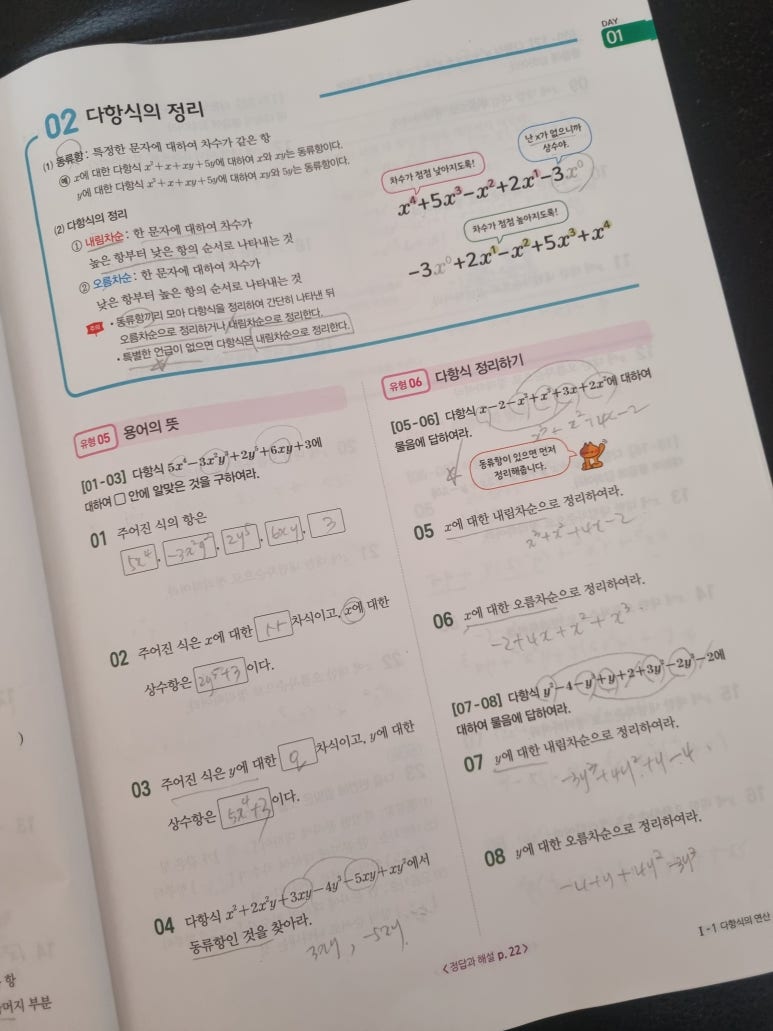 DAY
01
02 다항식의 정리
(1) 동류항: 특정한 문자에 대하여 차수가 같은 항
예 x에 대한 다항식 x²+x+xy+5y에 대하여 x와 xy는 동류항이다.
y에 대한 다항식 x²+x+xy+5y에 대하여 xy와 5y는 동류항이다.
(2) 다항식의 정리
① 내림차순: 한 문자에 대하여 차수가
높은 항부터 낮은 항의 순서로 나타내는 것
② 오름차순: 한 문자에 대하여 차수가
낮은 항부터 높은 항의 순서로 나타내는 것
주의 • 동류항끼리 모아 다항식을 정리하여 간단히 나타낸 뒤
오름차순으로 정리하거나 내림차순으로 정리한다.
• 특별한 언급이 없으면 다항식은 내림차순으로 정리한다.
난 x가 없으니까
상수야.
차수가 점점 낮아지도록!
x⁴+5x³−x²+2x¹−3x⁰
차수가 점점 높아지도록!
−3x⁰+2x¹−x²+5x³+x⁴
유형 05 용어의 뜻
[01-03] 다항식 5x⁴−3x²y³+2y⁵+6xy+3에
대하여 □ 안에 알맞은 것을 구하여라.
01 주어진 식의 항은
5x⁴, −3x²y², 2y⁵, 6xy, 3
02 주어진 식은 x에 대한 차식이고, x에 대한
상수항은 2y⁵+3 이다.
03 주어진 식은 y에 대한 차식이고, y에 대한
상수항은 5x⁴+3 이다.
04 다항식 x²+2x²y+3xy−4y³−5xy+xy²에서
동류항인 것을 찾아라.
3xy, −5xy
유형 06 다항식 정리하기
[05-06] 다항식 x−2−x²+x³+3x+2x²에 대하여
물음에 답하여라.
x³+x²+4x−2
동류항이 있으면 먼저
정리해줍니다.
05 x에 대한 내림차순으로 정리하여라.
x³+x²+4x−2
06 x에 대한 오름차순으로 정리하여라.
−2+4x+x²+x³
[07-08] 다항식 y²−4−y³+y+2+3y²−2y³−2에
대하여 물음에 답하여라.
07 y에 대한 내림차순으로 정리하여라.
−3y³+4y²+y−4
08 y에 대한 오름차순으로 정리하여라.
−4+y+4y²−3y³
Ⅰ-1 다항식의 연산
<정답과 해설 p.22>
)
항
머지 부분